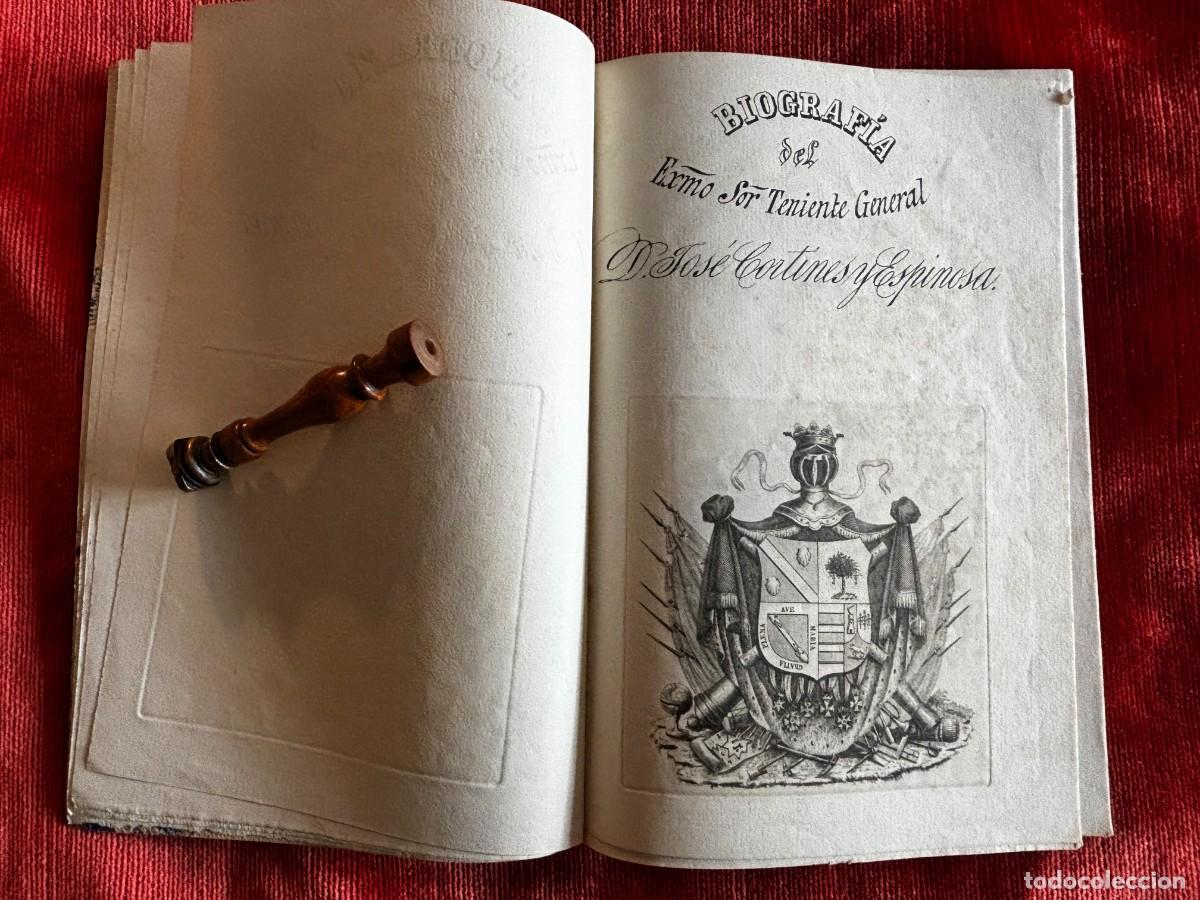 BIOGRAFÍA
del
Exmo Sor Teniente General
D. José Cortines y Espinosa.
AVE
MARIA
GRATIA
PLENA
todocoleccion